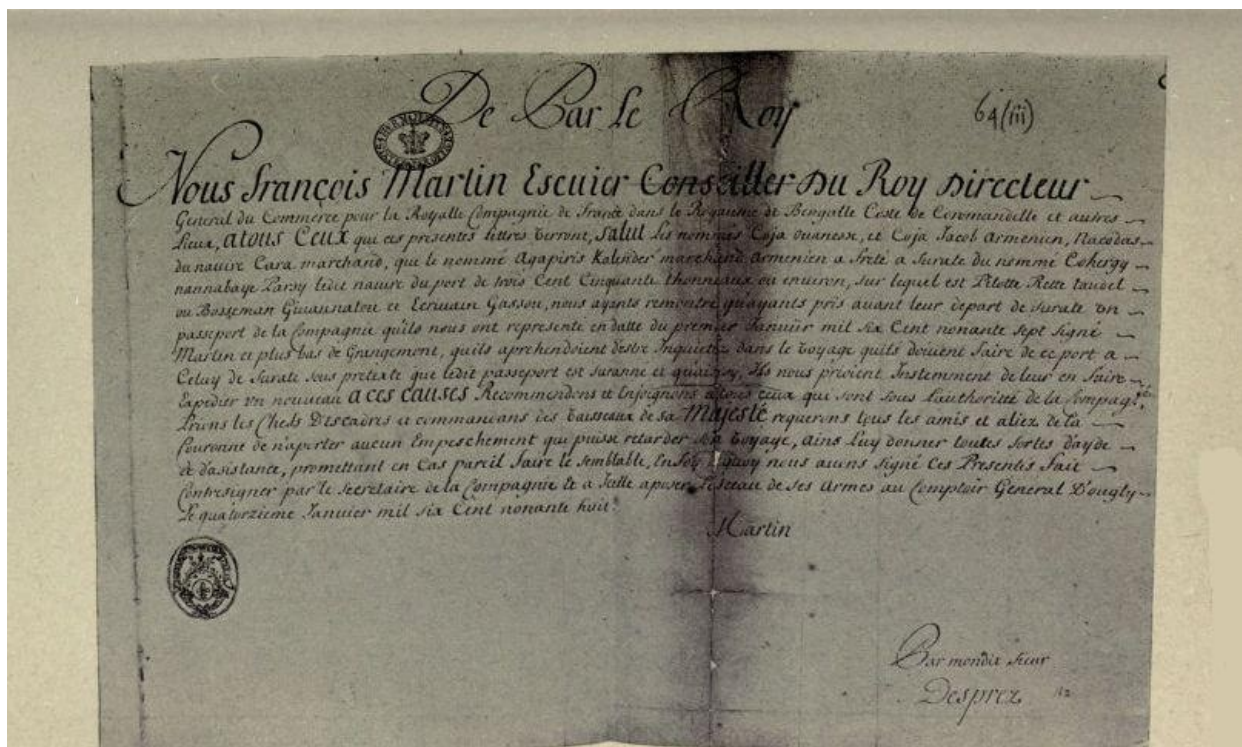 De Par Le Roy
64(iii)
Nous françois Martin Escuier Conseiller Du Roy Directeur
General du Commerce pour la Royalle Compagnie de france dans le Royaume de Bengalle Coste de Coromandelle et autres
Lieux, atous Ceux qui ces presentes lettres verront, salut Les nommés Coja ouanesse, et Coja Jacob Armenien, Nacodas
du navire Cara marchand, que le nommé Agapiris Kalender marchand Armenien a freté a Surate du nommé Cohergy
nannabaye Parsy ledit navire du port de trois Cent Cinquante thonneaux ou environ, sur lequel est Pilotte Rette tandel
ou Bosseman Guiannatou et Ecrivain Gassou, nous ayants remontré quayants pris avant leur depart de Surate un
passeport de la Compagnie quils nous ont representé en datte du premier Januier mil six Cent nonante sept signé
Martin et plus bas de Grangemont, quils aprehendoient destre Inquietez dans le voyage quils doivent faire de ce port a
Celuy de Surate sous pretexte que ledit passeport est suranné et quainsy, Ils nous prioient Instemment de leur en faire
Expedier vn nouveau a ces causes Recommendons et Enjoignons a tous ceux qui sont sous Lauthorité de la Compagnie,
Prions les Chefs Descadres et commandans des vaisseaux de sa Majesté requerons tous les amis et aliez de la
Couronne de n'aporter aucun Empeschement qui puisse retarder son voyage, ains Luy donner toutes sortes dayde
et dasistance, promettant en Cas pareil faire le semblable, En foy dequoy nous avons signé Ces Presentes fait
Contresigner par le secretaire de la Compagnie et a Icelle aposer Le sceau de ses Armes au Comptoir General D'ougly
Le quatorzieme Januier mil six Cent nonante huit.
Martin
Par mondit sieur
Desprez